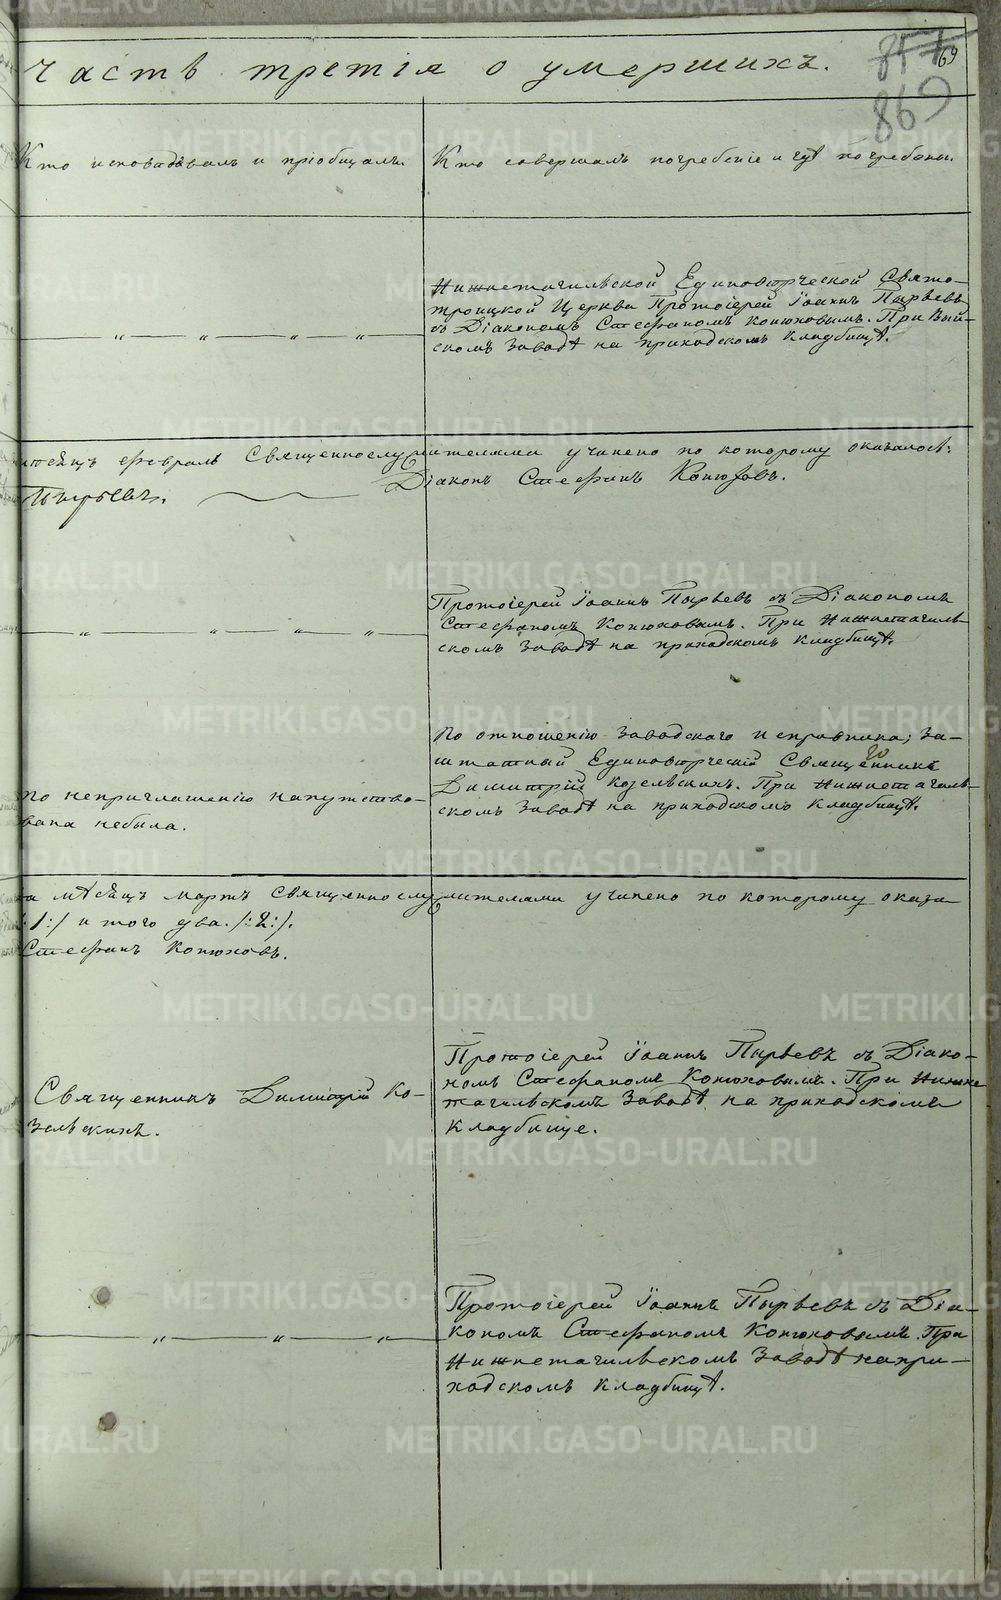 Часть третія о умершихъ.
69
869
Кто исповѣдывалъ и пріобщалъ.
Кто совершалъ погребеніе и гдѣ погребены.
Нижнетагильской Единовѣрческой Свято-
троицкой Церкви Протоіерей Іоаннъ Пырьевъ
съ Діакономъ Стефаномъ Конюховымъ. При Вый-
скомъ Заводѣ на приходскомъ Кладбищѣ.
— „ — „ — „ — „
мѣсяцъ февраль Священнослужителями учинено по которому оказалось:
Пырьевъ. Діаконъ Стефанъ Конюховъ.
Протоіерей Іоаннъ Пырьевъ съ Діакономъ
Стефаномъ Конюховымъ. При Нижнетагиль-
скомъ Заводѣ на приходскомъ Кладбищѣ.
— „ — „ — „ — „
По отношенію Заводскаго исправника; За-
штатный Единовѣрческій Священникъ
Димитрій Козельскихъ. При Нижнетагиль-
скомъ Заводѣ на приходскомъ Кладбищѣ.
по неприглашенію напутство-
вана небыла.
за мѣсяцъ мартъ Священнослужителями учинено по которому оказа-
/:1:/ и того два. /:2:/.
Стефанъ Конюховъ.
Протоіерей Іоаннъ Пырьевъ съ Діако-
номъ Стефаномъ Конюховымъ. При Нижне
тагильскомъ Заводѣ на приходскомъ
Кладбище.
Священникъ Димитрій Ко-
зельскихъ.
Протоіерей Іоаннъ Пырьевъ съ Діа-
кономъ Стефаномъ Конюховымъ. При
Нижнетагильскомъ Заводѣ на при-
ходскомъ Кладбищѣ.
— „ — „ — „
METRIKI.GASO-URAL.RU